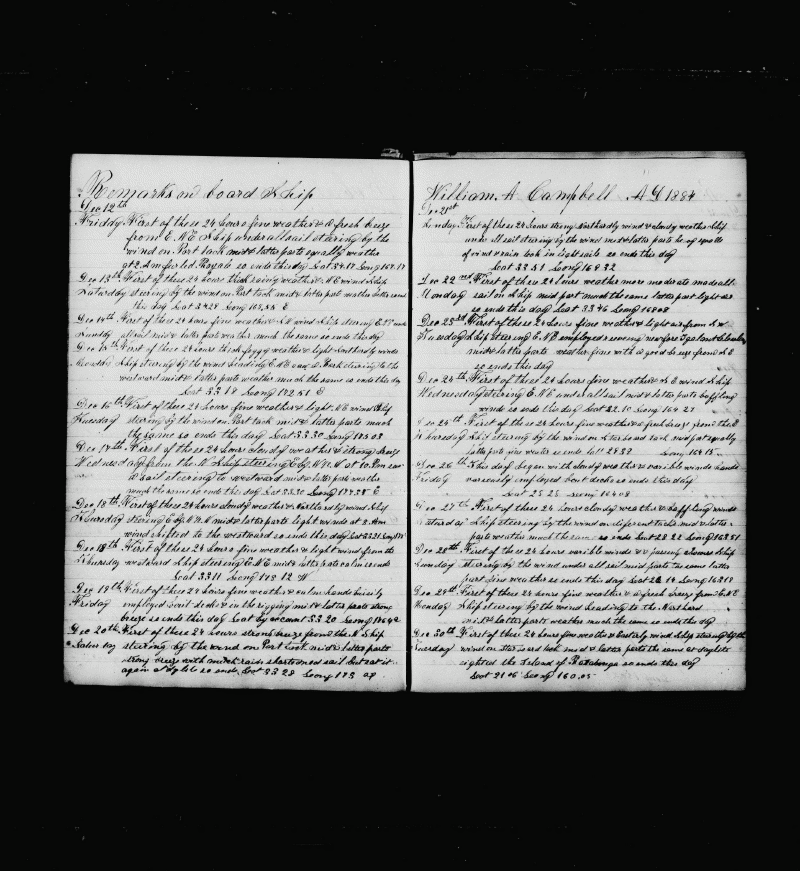 Remarks on board Ship
Dec 12th
Friday First of these 24 hours fine weather & a fresh breeze
from E.N.E Ship under all sail stearing by the
wind on Port tack mid & latter parts squally weather
at 2 Am furled Royals so ends this day Lat 34.17 Long 169.17
Dec 13th First of these 24 hours thick rainy weather & NE wind Ship
Saturday stearing by the wind on Port tack mid & latter part weather the same
this day Lat 34.28 Long 168,55 E
Dec 14th First of these 24 hours fine weather & wind Ship stearing under
Sunday all sail mid & latter part weather much the same so ends this day
Dec 15th First of these 24 hours thick foggy weather & light Northerly winds
Monday Ship stearing by the wind heading E.N.E and Tack stearing to the
westward mid & latter parts weather much the same so ends this day
Lat 33 18 Long 172 51 E
Dec 16th First of these 24 hours fine weather & light NE wind Ship
Tuesday stearing by the wind on Port tack mid & latter parts much
the same so ends this day Lat 33.30 Long
Dec 17th First of these 24 hours cloudy weather & strong breeze
Wednesday from the N. Ship stearing E by N at 10 Pm saw
a sail stearing to westward mid & latter parts weather
much the same so ends this day Lat 33.30 Long 177.38 E
Dec 18th First of these 24 hours cloudy weather & Northerly wind Ship
Thursday stearing E by N mid & latter parts light winds at 2 Am
wind shifted to the westward so ends this day Lat 33.21 Long
Dec 18th First of these 24 hours fine weather & light wind from the
Thursday westward Ship stearing E.N.E mid & latter parts calm so ends
Lat 33 11 Long 178 12 W
Dec 19th First of these 24 hours fine weather & calm hands buisily
Friday employed about decks & on the rigging mid & latter parts strong
breeze so ends this day Lat by account 33 20 Long 176 42
Dec 20th First of these 24 hours strong breeze from the N. Ship
Saturday stearing by the wind on Port tack mid & latter parts
strong breeze with much rain shortened sail but set it
again at daylite so ends Lat 33 28 Long 173
William A Campbell AD 1884
Dec 21st
Sunday First of these 24 hours strong Northardly wind & cloudy weather Ship
under all sail stearing by the wind mid & latter parts squalls
of wind & rain took in light sails so ends this day
Lat 33 51 Long 169 32
Dec 22nd First of these 24 hours weather more moderate made all
Monday sail on Ship mid part much the same latter part light air
so ends this day Lat 33 46 Long 168 08
Dec 23rd First of these 24 hours fine weather & light air from
Tuesday Ship stearing E.N.E employed reeving new fore Topsail
mid & latter parts weather fine with a good breeze from S E
so ends this day
Dec 24th First of these 24 hours fine weather & S E wind Ship
Wednesday stearing E.N.E under all sail mid & latter parts baffling
winds so ends this day Lat 32.10 Long 164 27
Dec 25th First of these 24 hours fine weather & a fresh breeze from the
Thursday Ship stearing by the wind on Starboard tack mid part squally
latter part fine weather so ends Lat Long 164 15
Dec 26th This day began with cloudy weather & variable winds hands
Friday variously employed about decks so ends this day
Lat Long 164 08
Dec 27th First of these 24 hours cloudy weather & baffling winds
Saturday Ship stearing by the wind on different tacks mid & latter
parts weather much the same so ends Lat 28 22 Long 163 51
Dec 28th First of these 24 hours variable winds & passing showers Ship
Sunday stearing by the wind under all sail mid parts the same latter
part fine weather so ends this day Lat Long
Dec 29th First of these 24 hours fine weather & a fresh breeze from E.N.E
Monday Ship stearing by the wind heading to the Northard
mid & latter parts weather much the same so ends this day
Dec 30th First of these 24 hours fine weather & Easterly wind Ship stearing by the
Tuesday wind on Starboard tack mid & latter parts the same at daylite
sighted the Island of Raratonga so ends this day
Lat 21 06 Long 160.05